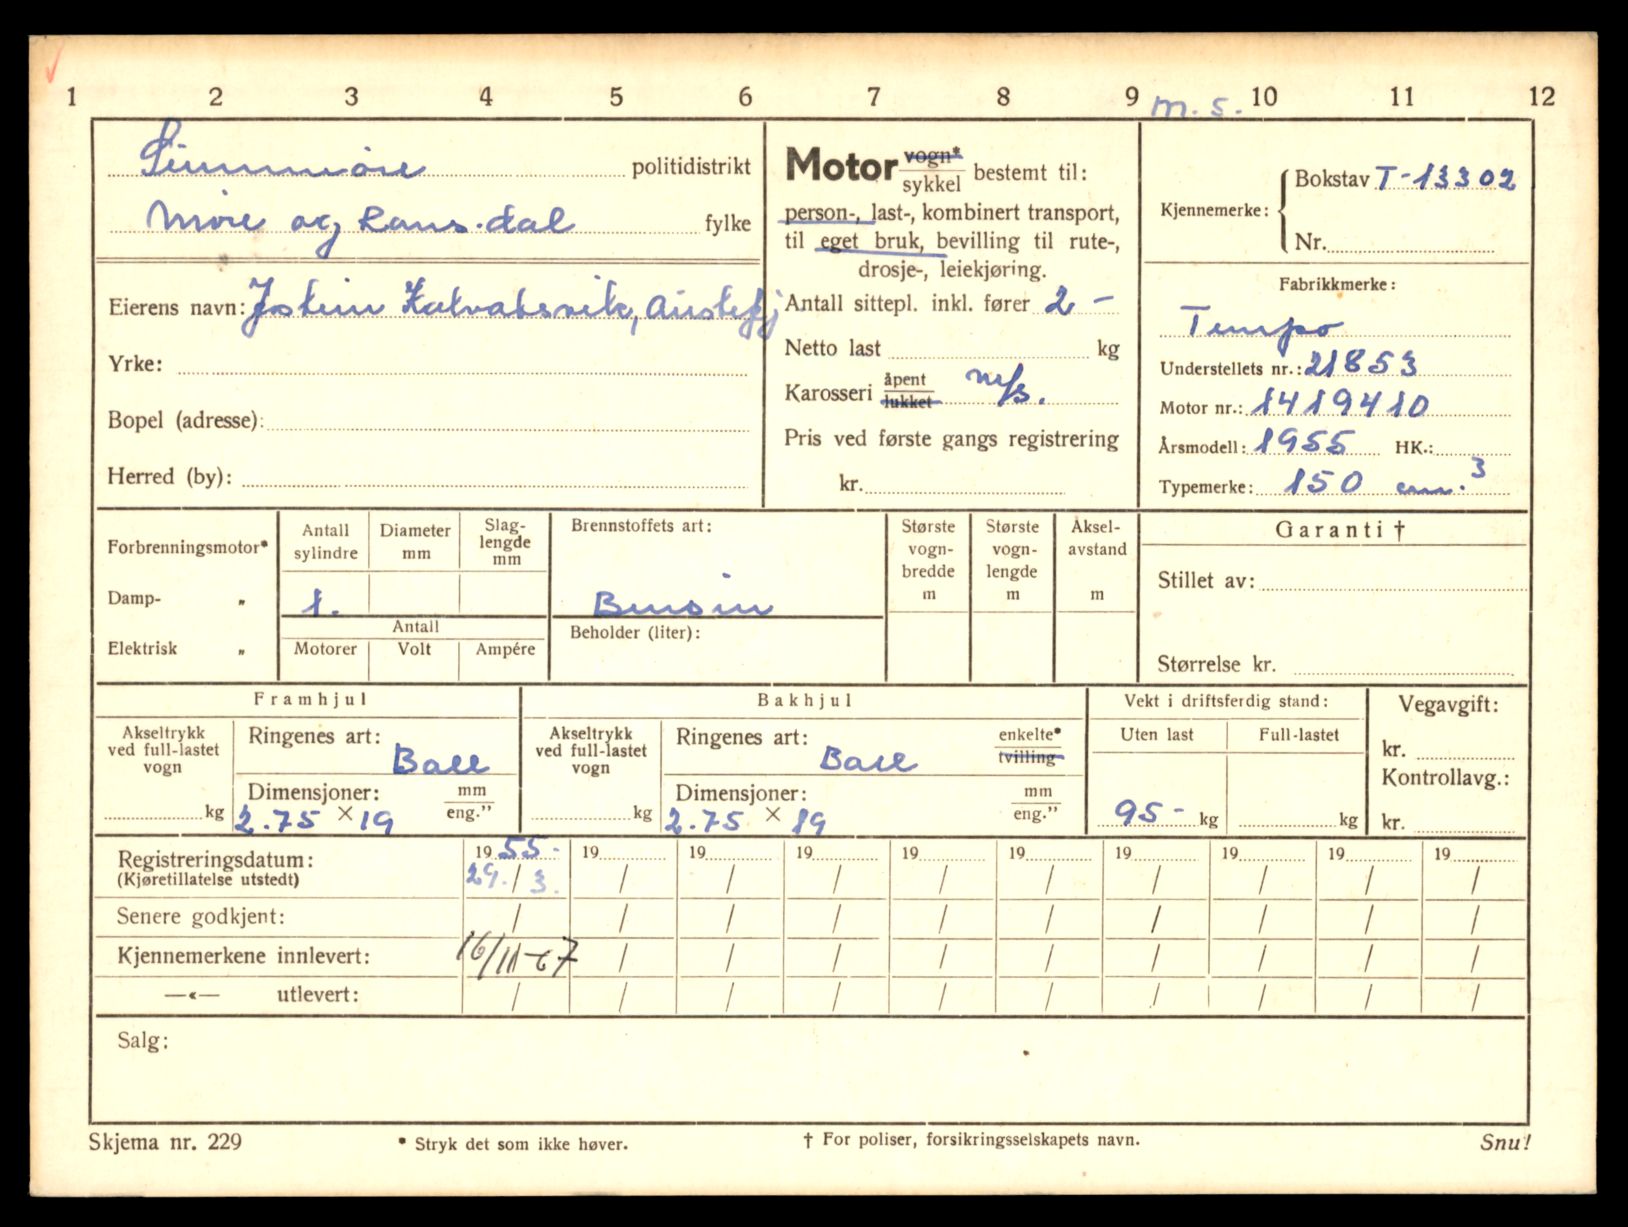 1 2 3 4 5 6 7 8 9 10 11 12
m. s.
Sunnmøre politidistrikt
Møre og Roms.dal fylke
Eierens navn: Jostein Kalvatsvik, Austefj
Yrke:
Bopel (adresse):
Herred (by):
Motor vogn* sykkel bestemt til:
person-, last-, kombinert transport,
til eget bruk, bevilling til rute-,
drosje-, leiekjøring.
Antall sittepl. inkl. fører 2 -
Netto last kg
Karosseri åpent lukket m/s.
Pris ved første gangs registrering
kr.
Kjennemerke: Bokstav T-13302
Nr.
Fabrikkmerke:
Tempo
Understellets nr.: 21853
Motor nr.: 1419410
Årsmodell: 1955 HK.:
Typemerke: 150 cm.³
Forbrenningsmotor*
Damp- „
Elektrisk „
Antall sylindre
Diameter mm
Slag-lengde mm
1.
Antall
Motorer Volt Ampére
Brennstoffets art:
Bensin
Beholder (liter):
Største vogn-bredde m
Største vogn-lengde m
Aksel-avstand m
Garanti †
Stillet av:
Størrelse kr.
Framhjul
Akseltrykk ved full-lastet vogn
kg
Ringenes art:
Ball
Dimensjoner: mm eng.”
2.75 × 19
Bakhjul
Akseltrykk ved full-lastet vogn
kg
Ringenes art: enkelte* tvilling
Ball
Dimensjoner: mm eng.”
2.75 × 19
Vekt i driftsferdig stand:
Uten last Full-lastet
95- kg kg
Vegavgift:
kr.
Kontrollavg.:
kr.
Registreringsdatum: 1955- 19 19 19 19 19 19 19 19 19
(Kjøretillatelse utstedt) 29./3. / / / / / / / / /
Senere godkjent: / / / / / / / / / /
Kjennemerkene innlevert: 16/11-67 / / / / / / / / /
—«— utlevert: / / / / / / / / / /
Salg:
Skjema nr. 229
* Stryk det som ikke høver.
† For poliser, forsikringsselskapets navn.
Snu!